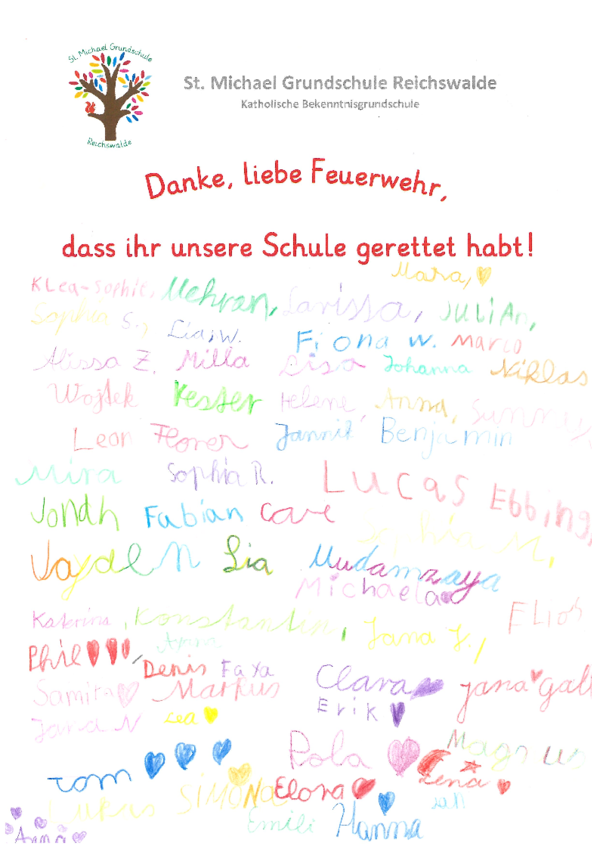 St. Michael Grundschule
Reichswalde
St. Michael Grundschule Reichswalde
Katholische Bekenntnisgrundschule
Danke, liebe Feuerwehr,
dass ihr unsere Schule gerettet habt!
Mara,
Klea-Sophie, Mehran, Larissa, Julian,
Sophia S., Lia, W. Fiona W. Mario
Alissa Z. Milla Lisa Johanna Niklas
Wojtek Helene, Anna,
Leon Jannik Benjamin
Mira Sophia R. Lucas Ebbing,
Fabian
Jayden Lia
Michaela
Katarina, Konstantin, Jana J., Elias
Phil Denis Clara Jana
Samira Markus Erik
Jana N Lea
Pola
Tom Simona Elora Lena
Emili Hanna
Anna